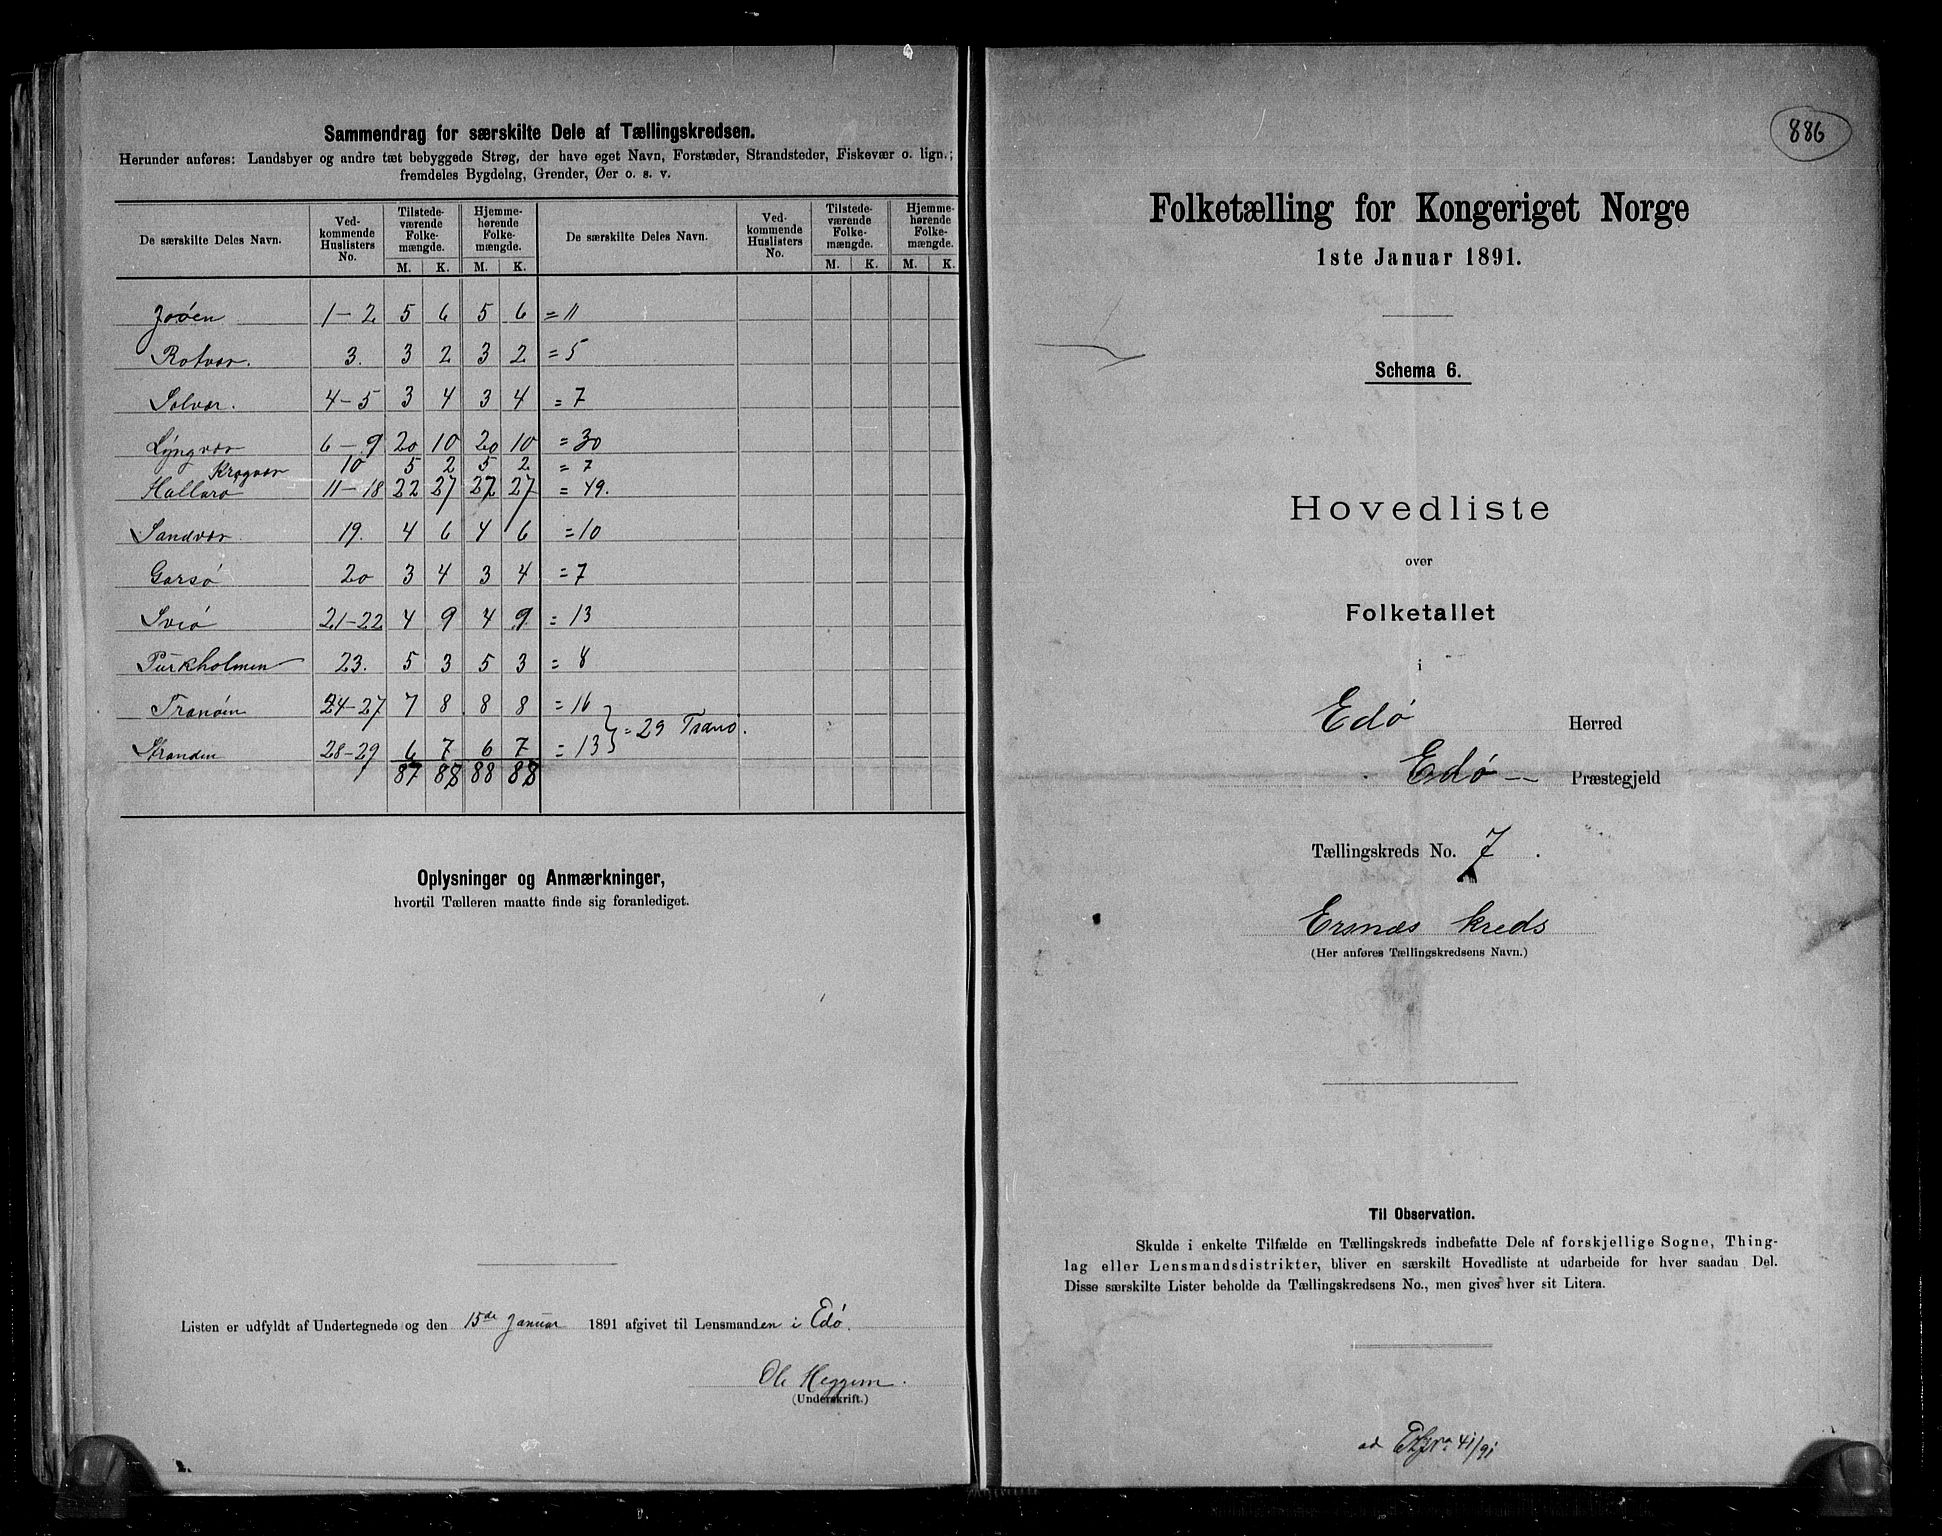 Sammendrag for særskilte Dele af Tællingskredsen.
Herunder anføres: Landsbyer og andre tæt bebyggede Strøg, der have eget Navn, Forstæder, Strandsteder, Fiskevær o. lign.;
fremdeles Bygdelag, Grender, Øer o. s. v.
De særskilte Deles Navn. Ved-kommende Huslisters No. Tilstede-værende Folke-mængde. Hjemme-hørende Folke-mængde. De særskilte Deles Navn. Ved-kommende Huslisters No. Tilstede-værende Folke-mængde. Hjemme-hørende Folke-mængde.
M. K. M. K. M. K. M. K.
1-2 5 6 5 6 = 11
Rotvær. 3. 3 2 3 2 = 5
Solvær. 4-5 3 4 3 4 = 7
Lyngvær 6-9 20 10 20 10 = 30
Krogvær 10 5 2 5 2 = 7
Hallarø 11-18 22 27 22 27 = 49.
Sandvær 19. 4 6 4 6 = 10
Garsø 20 3 4 3 4 = 7
Sviø 21-22 4 9 4 9 = 13
Purkholmen 23. 5 3 5 3 = 8
Tranøen 24-27 7 8 8 8 = 16
= 29 Tranø.
Stranden 28-29 6 7 6 7 = 13
87 88 88 88
Oplysninger og Anmærkninger,
hvortil Tælleren maatte finde sig foranlediget.
Listen er udfyldt af Undertegnede og den 15de Januar 1891 afgivet til Lensmanden i Edø.
Ole Heggem.
(Underskrift.)
886
Folketælling for Kongeriget Norge
1ste Januar 1891.
Schema 6.
Hovedliste
over
Folketallet
i
Edø Herred
Edø Præstegjeld
Tællingskreds No. 7.
Ersnæs kreds
(Her anføres Tællingskredsens Navn.)
Til Observation.
Skulde i enkelte Tilfælde en Tællingskreds indbefatte Dele af forskjellige Sogne, Thing-
lag eller Lensmandsdistrikter, bliver en særskilt Hovedliste at udarbeide for hver saadan Del.
Disse særskilte Lister beholde da Tællingskredsens No., men gives hver sit Litera.
ad 41/91